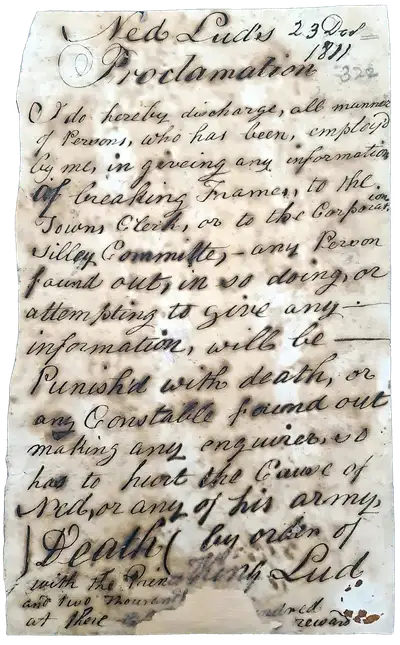 Ned Lud's 23 Decr
1811
Proclamation 322
I do hereby discharge, all manner
of Persons, who has been, employ'd
by me, in giveing any information
of breaking Frames, to the
Towns Clerk, or to the Corporation
Silley Committe,- any Person
found out, in so doing, or
attempting to give any
information, will be
Punish'd with death, or
any Constable found out
making any enquiries, so
has to hurt the Cause of
Ned, or any of his army,
Death by order of
King Lud
with the
and two thousand
at there reward